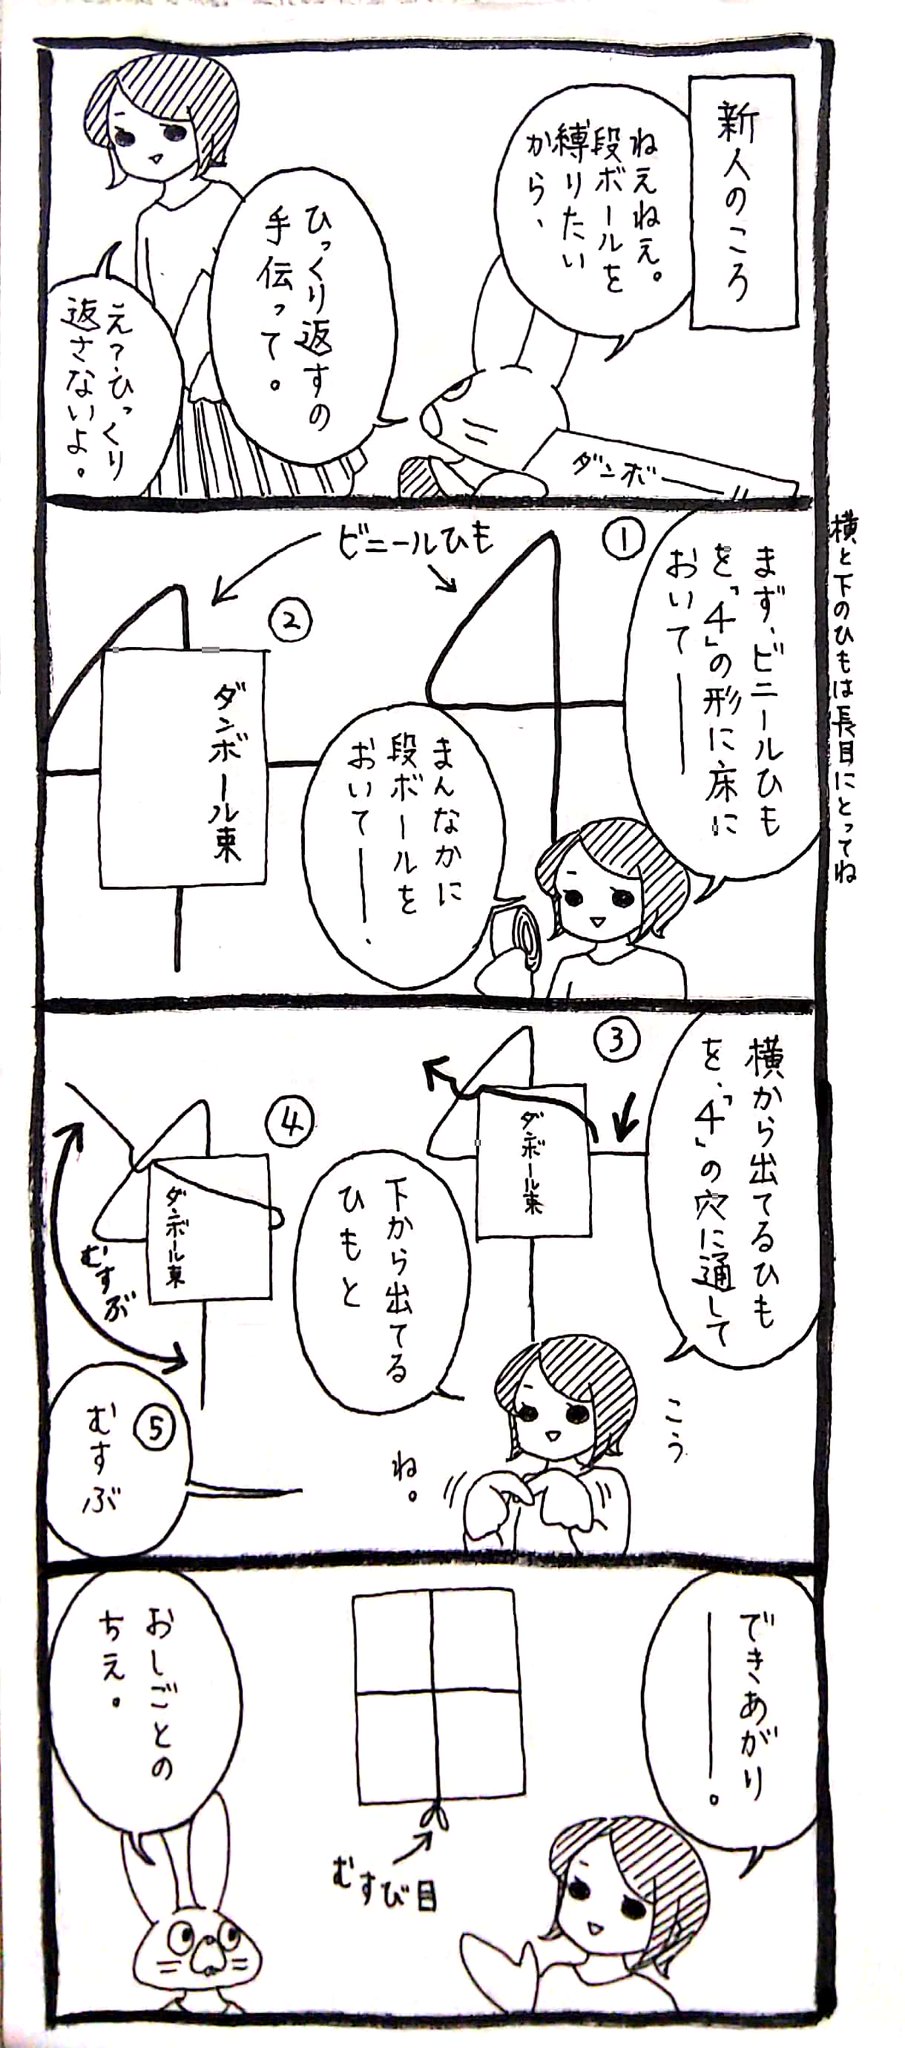 新人のころ
ねえねえ。
段ボールを
縛りたい
から、
ひっくり返すの
手伝って。
え?ひっくり
返さないよ。
ダンボー
横と下のひもは長目にとってね
まず、ビニールひも
を「4」の形に床に
おいて――
①
ビニールひも
②
ダンボール束
まんなかに
段ボールを
おいて――、
横から出てるひも
を、「4」の穴に通して
③
ダンボール束
こう
下から出てる
ひもと
④
ダンボール束
むすぶ
ね。
⑤
むすぶ
できあがり
――。
むすび目
おしごとの
ちえ。